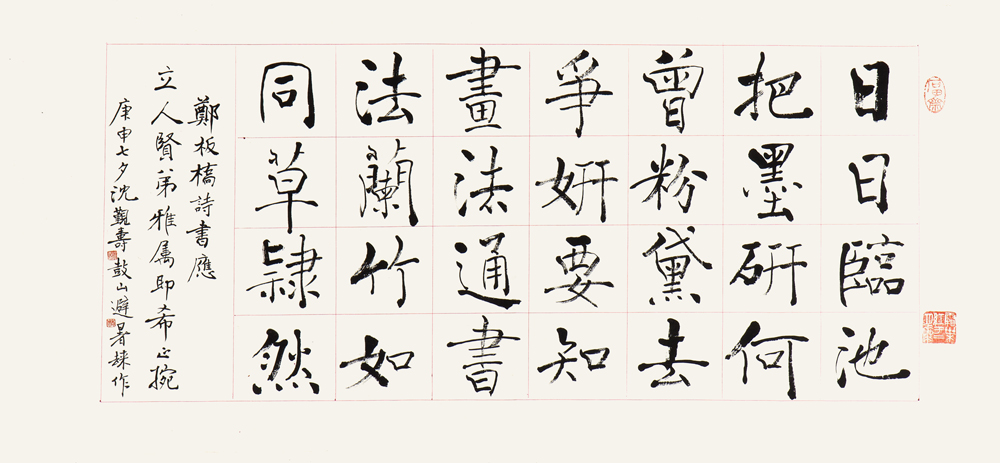 日日臨池
把墨研何
曾粉黛去
爭妍要知
畫法通書
法蘭竹如
同草隸然
鄭板橋詩書應
立人賢弟雅屬即希正捥
庚申七夕沈覲壽鼓山避暑
作